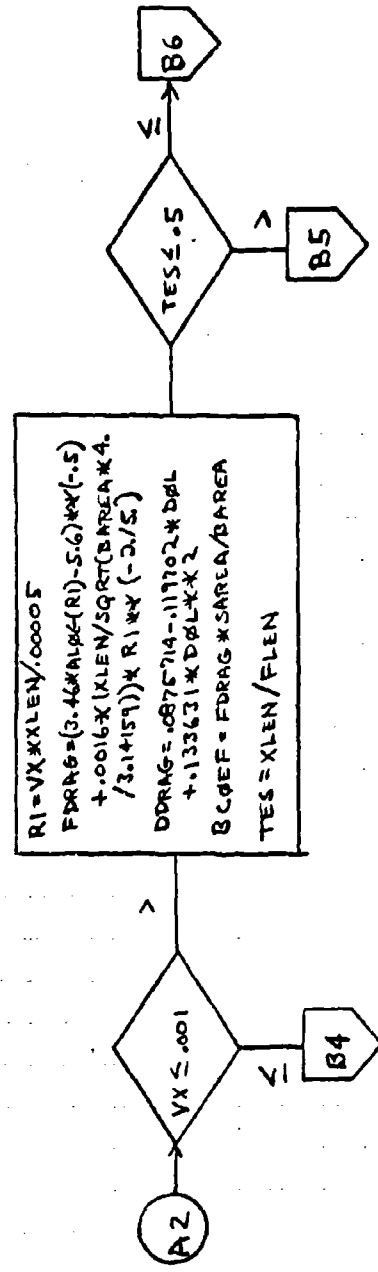 A2
VX ≤ .001
≤
B4
>
R1 = VX*XLEN/.00005
FDRAG=(3.46*ALØG(R1)-5.6)**(-.5)
+.0016*(XLEN/SQRT(BAREA*4.
/3.14159))*R1**(-2/5.)
DDRAG=.0875714-.119702*DØL
+.133631*DØL**2
BCØEF=FDRAG*SAREA/BAREA
TES=XLEN/FLEN
TES ≤ .5
>
B5
≤
B6